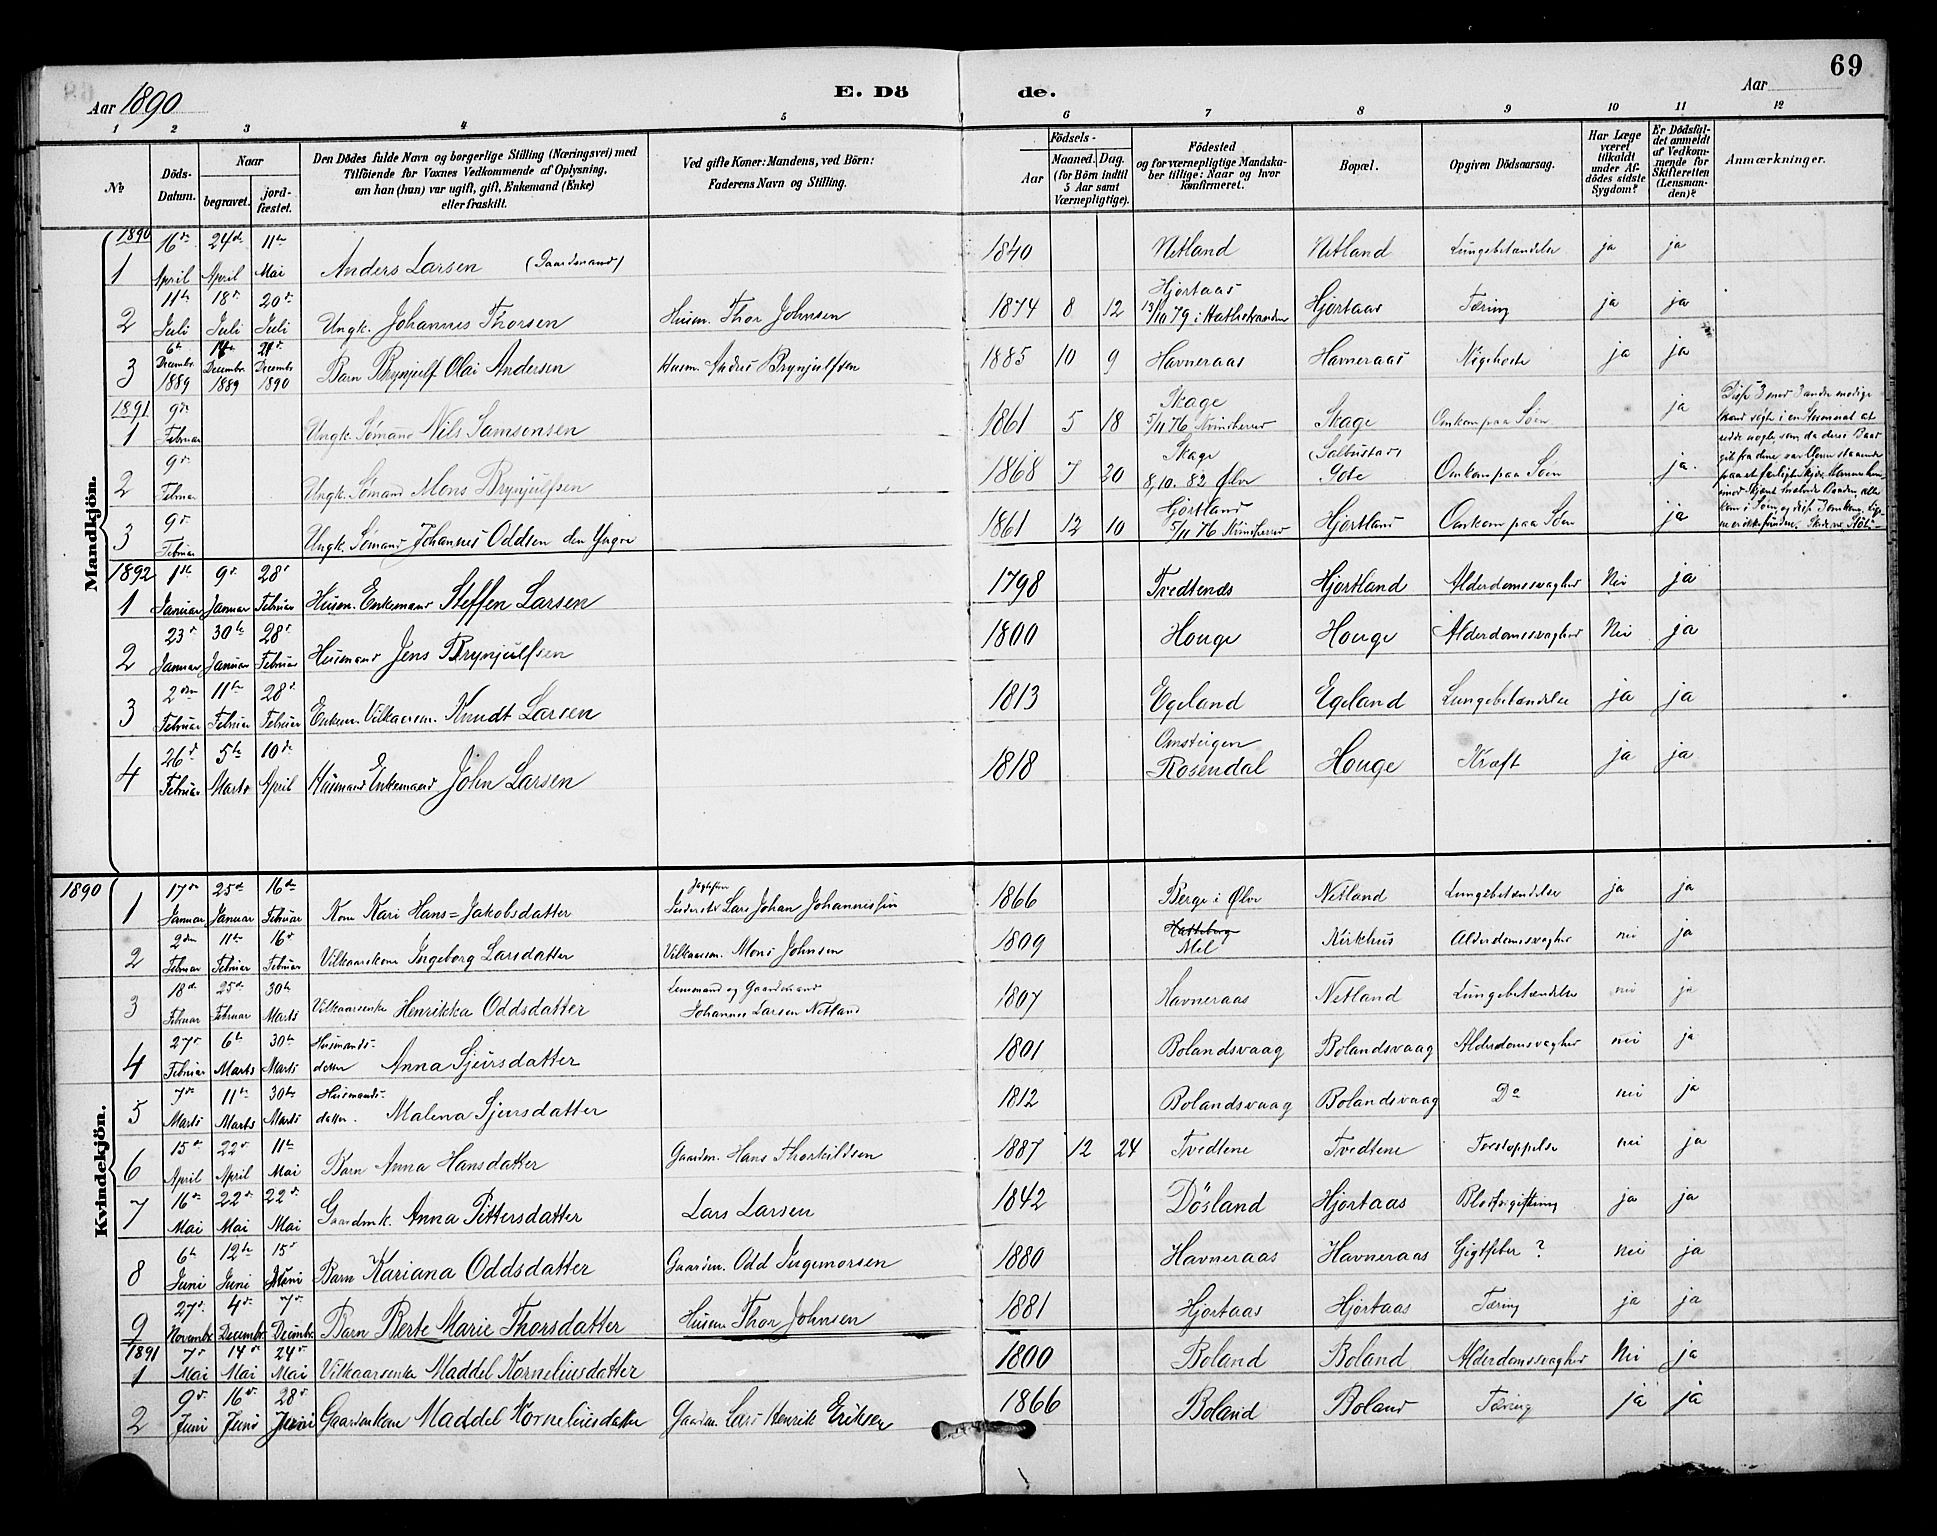 69
Aar 1890 E. Dö de. Aar
1 2 3 4 5 6 7 8 9 10 11 12
No
Döds-Datum.
Naar
begravet. jordfæstet.
Den Dödes fulde Navn og borgerlige Stilling (Næringsvei) med
Tilföiende for Voxnes Vedkommende af Oplysning,
om han (hun) var ugift, gift, Enkemand (Enke)
eller fraskilt.
Ved gifte Koner: Mandens, ved Börn:
Faderens Navn og Stilling.
Födsels-
Aar Maaned. Dag.
(for Börn indtil
5 Aar samt
Værnepligtige).
Födested
og for værnepligtige Mandskaber tillige: Naar og hvor
konfirmeret.
Bopæl.
Opgiven Dödsaarsag.
Har Læge
været
tilkaldt
under Afdödes sidste
Sygdom?
Er Dödsfaldet anmeldt
af Vedkommende for
Skifteretten
(Lensmanden)?
Anmærkninger.
Mandkjön.
1890
1 16de April 24de April 11te Mai Anders Larsen (Gaardmand) 1840 Netland Netland Lungebetændelse ja ja
2 11te Juli 18de Juli 20de Juli Ungk. Johannes Thorsen Husm. Thor Johnsen 1874 8 12 Hjortaas Hjortaas Tæring ja ja
3 6te Decembr. 1889 Decembr 1889 21de Decembr 1890 Barn Brynjulf Olai Andersen Husm. Andres Brynjulfsen 1885 10 9 Havneraas Havneraas Kighoste ja ja
1891
1 9de Februar Ungk. Sömand Nils Samsonsen 1861 5 18 Skage 5/11 76 Kvinherred Skage Omkom paa Söen ja
2 9de Februar Ungk. Sömand Mons Brynjulfsen 1868 7 20 Skage 8/10. 82 Ølve Omkom paa Söen ja.
3 9de Februar Ungk. Sömand Johannes Oddsen den Yngre 1861 12 10 Hjortland 5/11 76 Kvinherred Hjortland Omkom paa Söen ja
1892
1 1ste Januar 9de Januar 28de Februar Husm. Enkemand Steffen Larsen 1798 Tvedtenes Hjortland Alderdomssvaghed Nei ja
2 23de Januar 30te Januar 28de Februar Husmand Jens Brynjulfsen 1800 Houge Houge Alderdomssvaghed Nei ja
3 2den Februar 11te Februar 28de Februar Enkem. Vilkaarsm. Knudt Larsen 1813 Egeland Egeland Lungebetændelse ja ja
4 26de Februar 5te Marts 10de April Husmand Enkemand John Larsen 1818 Rosendal Houge Kræft ja ja
Kvindekjön.
1890
1 17de Januar 25de Januar 16de Februar Kone Kari Hans=Jakobsdatter Lars Johan Johannessen 1866 Berge i Ølve Netland Lungebetændelse ja ja
2 2den Februar 11te Februar 16de Februar Vilkaarskone Ingeborg Larsdatter Vilkaarsm. Mons Johnsen 1809 Mel Kirkhus Alderdomssvaghed nei ja
3 18de Februar 25de Februar 30te Marts Vilkaarsenke Henrikka Oddsdatter Lensmand og Gaardmand Johannes Larsen Netland 1807 Havneraas Netland Lungebetændelse nei ja
4 27de Februar 6te Marts 30te Marts Husmandsdatter Anna Sjursdatter 1801 Bolandsvaag Bolandsvaag Alderdomssvaghed nei ja
5 7de Marts 11te Marts 30te Marts Husmandsdatter. Malena Sjursdatter 1812 Bolandsvaag Bolandsvaag Do nei ja
6 15de April 22de April 11te Mai Barn Anna Hansdatter Gaardm. Hans Thorkildsen 1887 12 24 Tvedtene Tvedtene Forstoppelse nei ja
7 16de Mai 22de Mai 22de Mai Gaardmk. Anna Pittersdatter Lars Larsen 1842 Dösland Hjortaas Blodforgiftning ja ja
8 6te Juni 12te Juni 15de Juni Barn Kariana Oddsdatter Gaardm. Odd Ingemorsen 1880 Havneraas Havneraas Gigtfeber ? nei ja
9 27de Novembr 4de Decembr 7de Decembr. Barn Berte Marie Thorsdatter Husm. Thor Johnsen 1881 Hjortaas Hjortaas Tæring ja ja
1891
1 7de Mai 14de Mai 24de Mai Vilkaarsenke Maddel Korneliusdatter 1800 Boland Boland Alderdomssvaghed Nei ja
2 9de Juni 16de Juni 28de Juni Gaardmkone Maddel Korneliusdatter Gaardm. Lars Henrik Eriksen 1866 Boland Boland Tæring ja ja